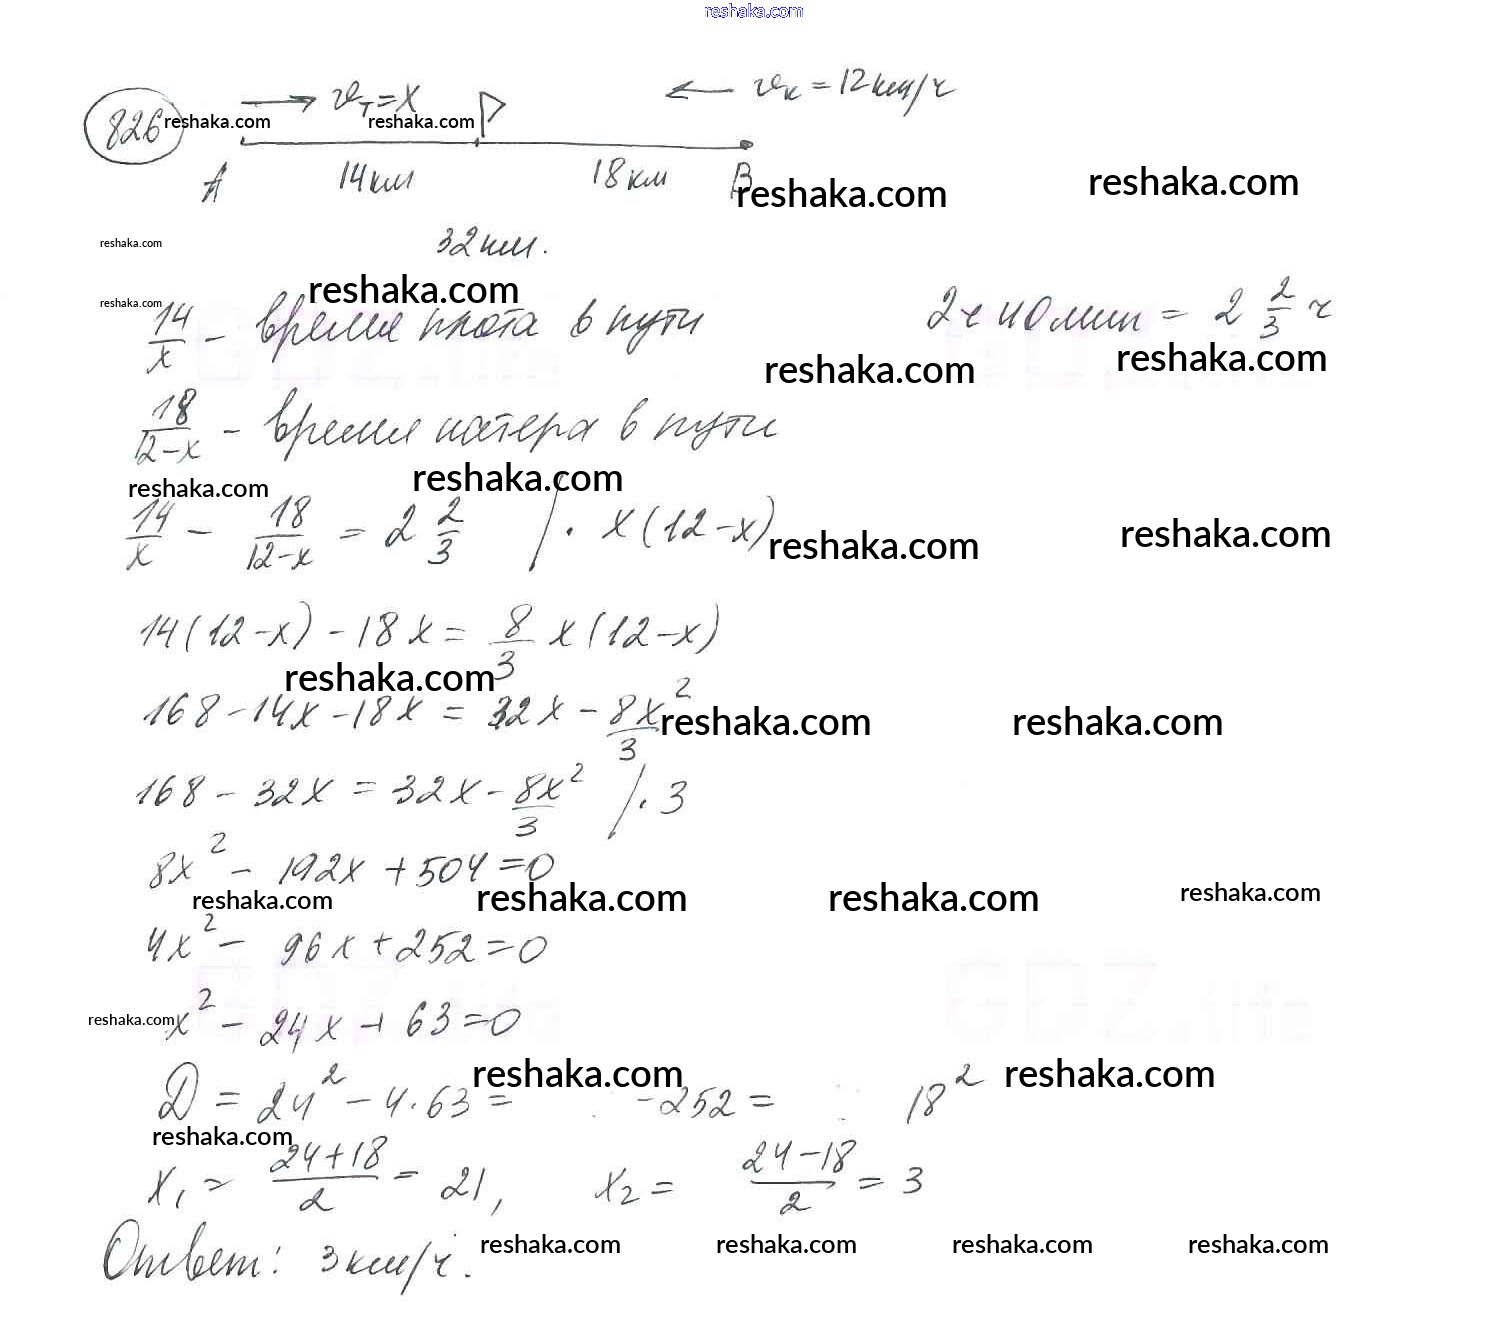 reshaka.com
826 reshaka.com → υт = x reshaka.com ← υк = 12 км/ч
A 14 км 18 км B reshaka.com reshaka.com
reshaka.com 32 км.
reshaka.com reshaka.com
14/x – время плота в пути 2 ч 40 мин = 2 2/3 ч
reshaka.com reshaka.com
18/(12-x) – время катера в пути
reshaka.com reshaka.com
14/x – 18/(12-x) = 2 2/3 / · x(12-x) reshaka.com reshaka.com
14(12-x) - 18x = 8/3 x(12-x)
reshaka.com
168 - 14x - 18x = 32x - 8x²/3 reshaka.com reshaka.com
168 - 32x = 32x - 8x²/3 / · 3
8x² - 192x + 504 = 0
reshaka.com reshaka.com reshaka.com reshaka.com
4x² - 96x + 252 = 0
reshaka.com x² - 24x + 63 = 0
reshaka.com reshaka.com
D = 24² - 4·63 = -252 = 18²
reshaka.com
x₁ = (24+18)/2 = 21, x₂ = (24-18)/2 = 3
Ответ: 3 км/ч. reshaka.com reshaka.com reshaka.com reshaka.com